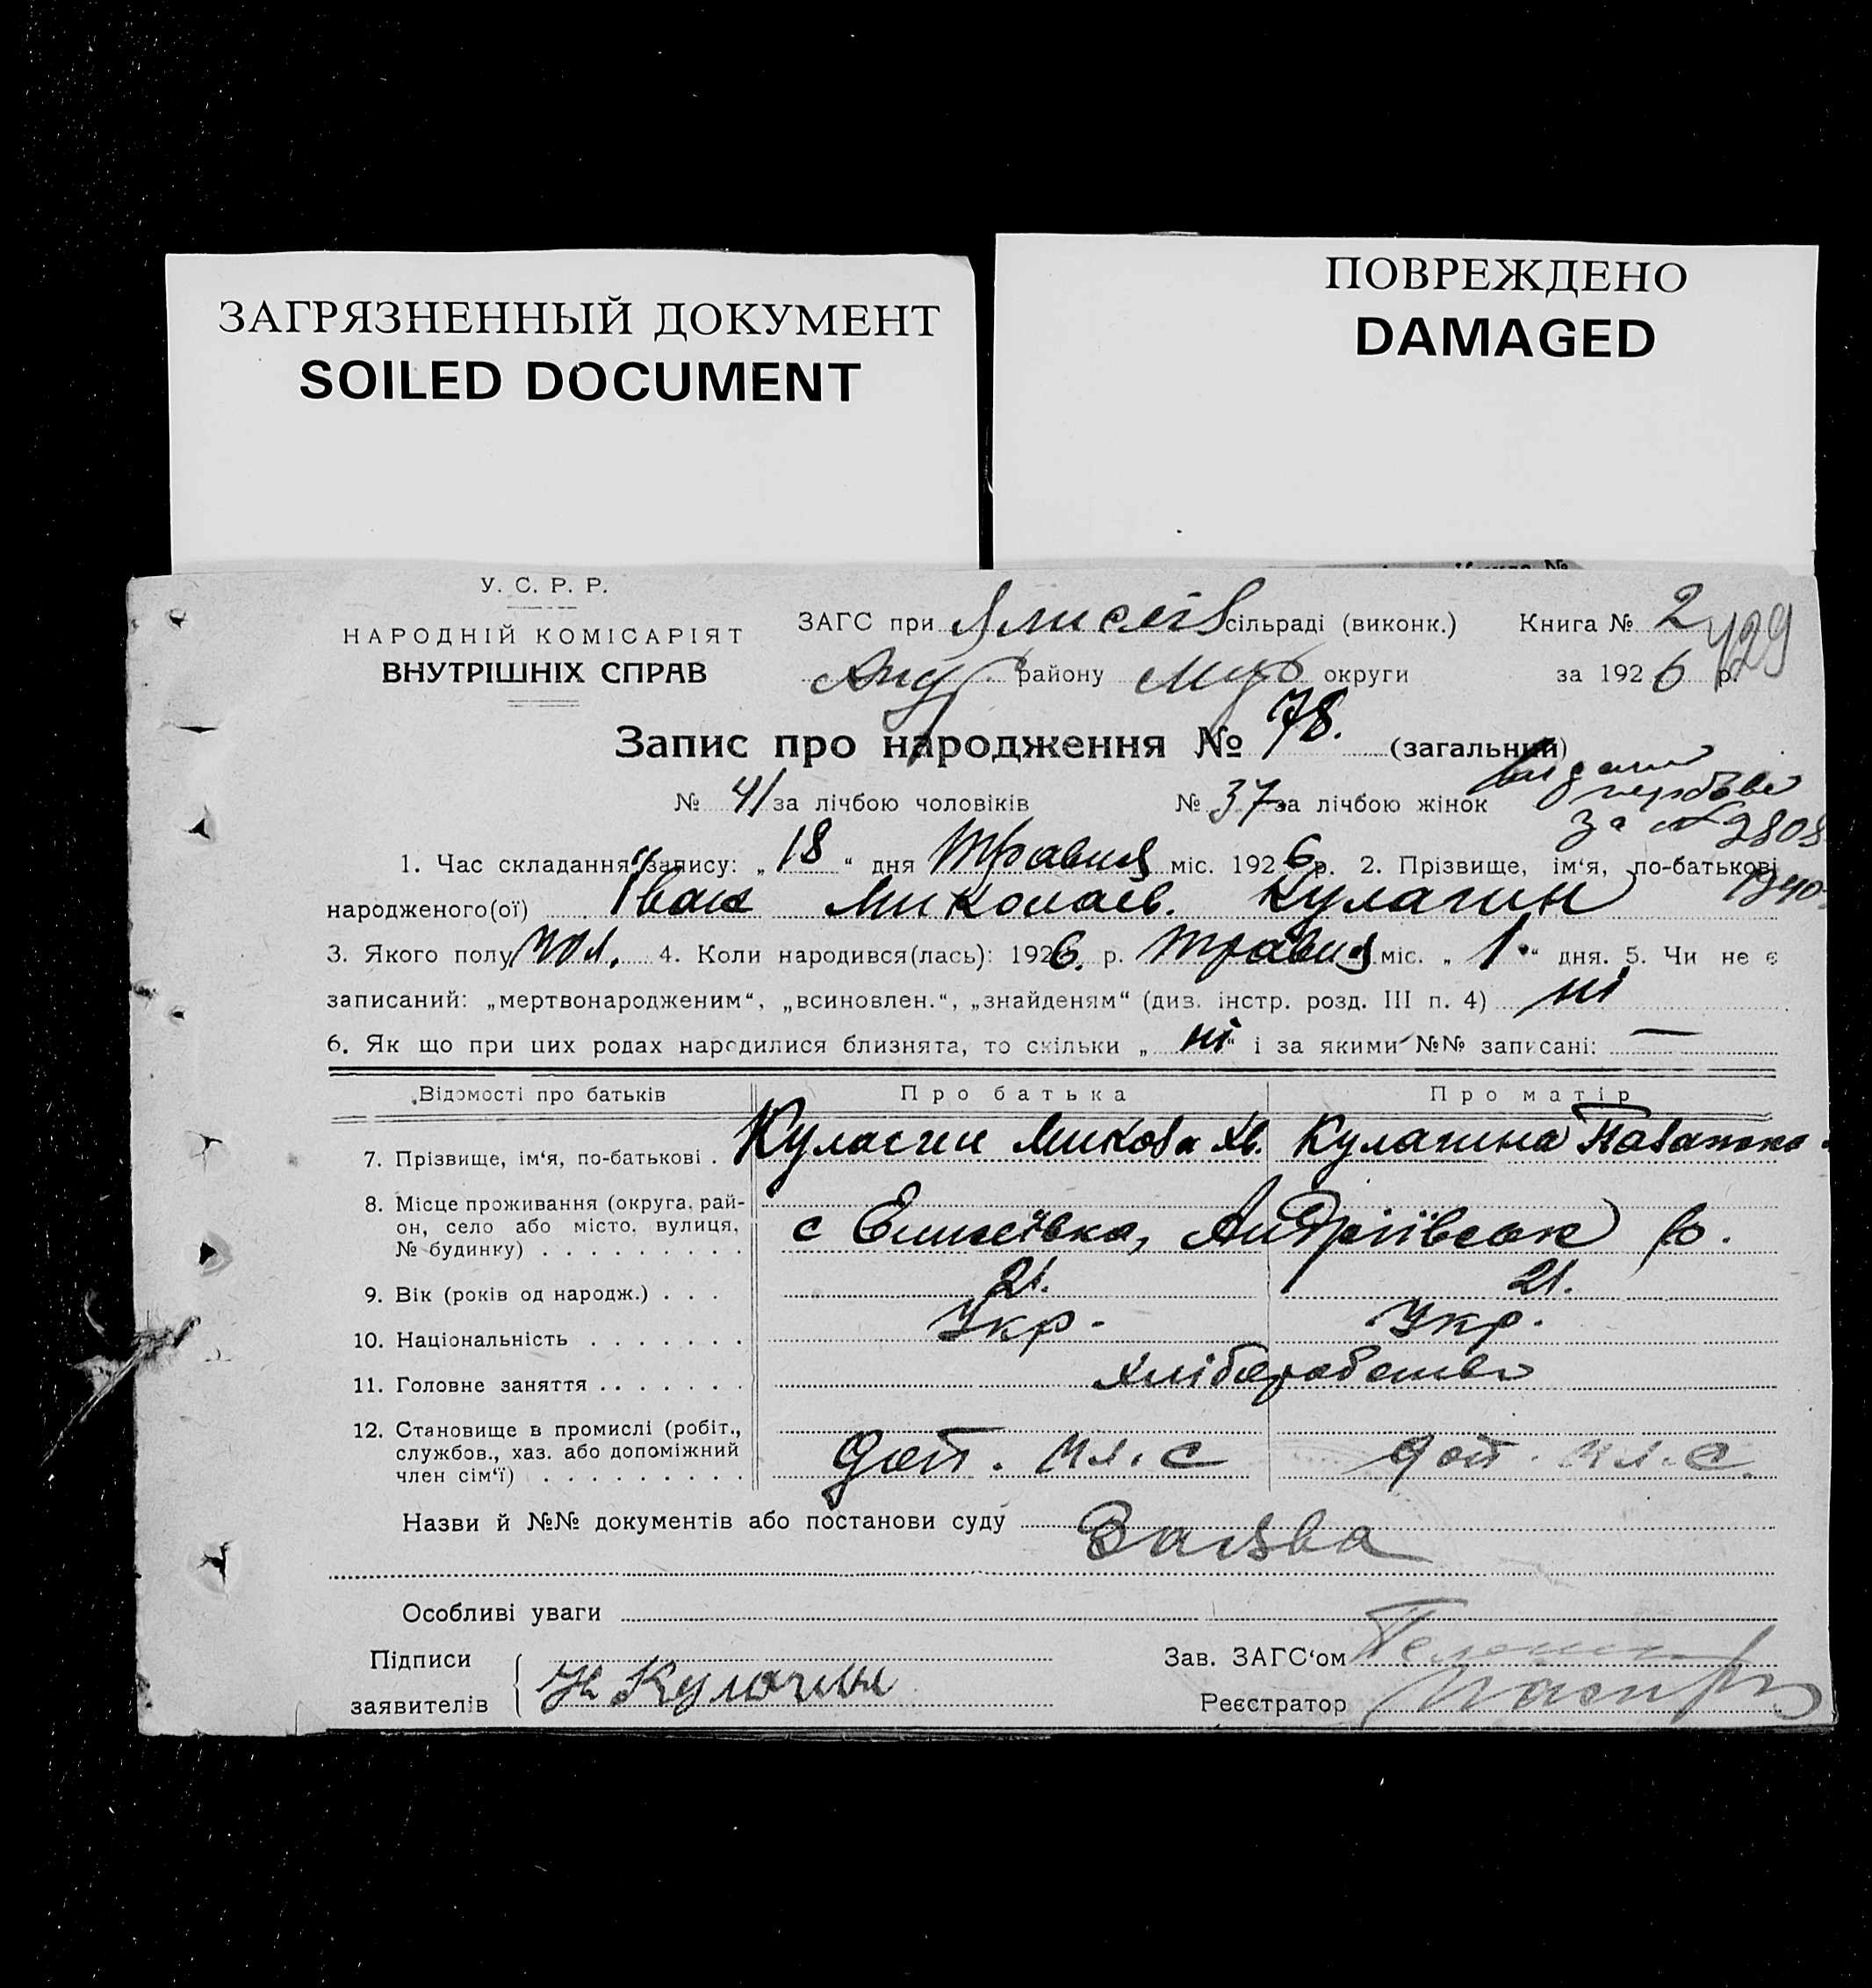 ЗАГРЯЗНЕННЫЙ ДОКУМЕНТ
SOILED DOCUMENT
ПОВРЕЖДЕНО
DAMAGED
У. С. Р. Р.
НАРОДНІЙ КОМІСАРІЯТ
ВНУТРІШНІХ СПРАВ
ЗАГС при сільраді (виконк.) Книга № 2
району округи за 1926 р.
429
Запис про народження № 78. (загальний)
№ 41 за лічбою чоловіків № 37 за лічбою жінок
за № 2808
1940
1. Час складання запису: „18“ дня Травня міс. 1926 р. 2. Прізвище, ім‘я, по-батькові
народженого(ої) Іван Миколаєв. Кулагин
3. Якого полу чол. 4. Коли народився(лась): 1926. р. травня міс. „1“ дня. 5. Чи не є
записаний: „мертвонародженим“, „всиновлен.“, „знайденям“ (див. інстр. розд. III п. 4) ні
6. Як що при цих родах народилися близнята, то скільки „ні“ і за якими №№ записані: —
Відомості про батьків Про батька Про матір
7. Прізвище, ім‘я, по-батькові . Кулагин Микола Хв. Кулагина
8. Місце проживання (округа, рай-
он, село або місто, вулиця,
№ будинку) . . . . . . . . . с Елисеївка, Андріївськ р.
9. Вік (років од народж.) . . . 21. 21.
10. Національність . . . . . . . Укр. Укр.
11. Головне заняття . . . . . . . хліборобство
12. Становище в промислі (робіт.,
службов., хаз. або допоміжний
член сім‘ї) . . . . . . . . . доп. чл. с доп. чл. с.
Назви й №№ документів або постанови суду Заява
Особливі уваги
Підписи
заявителів Н Кулагин
Зав. ЗАГС‘ом
Реєстратор